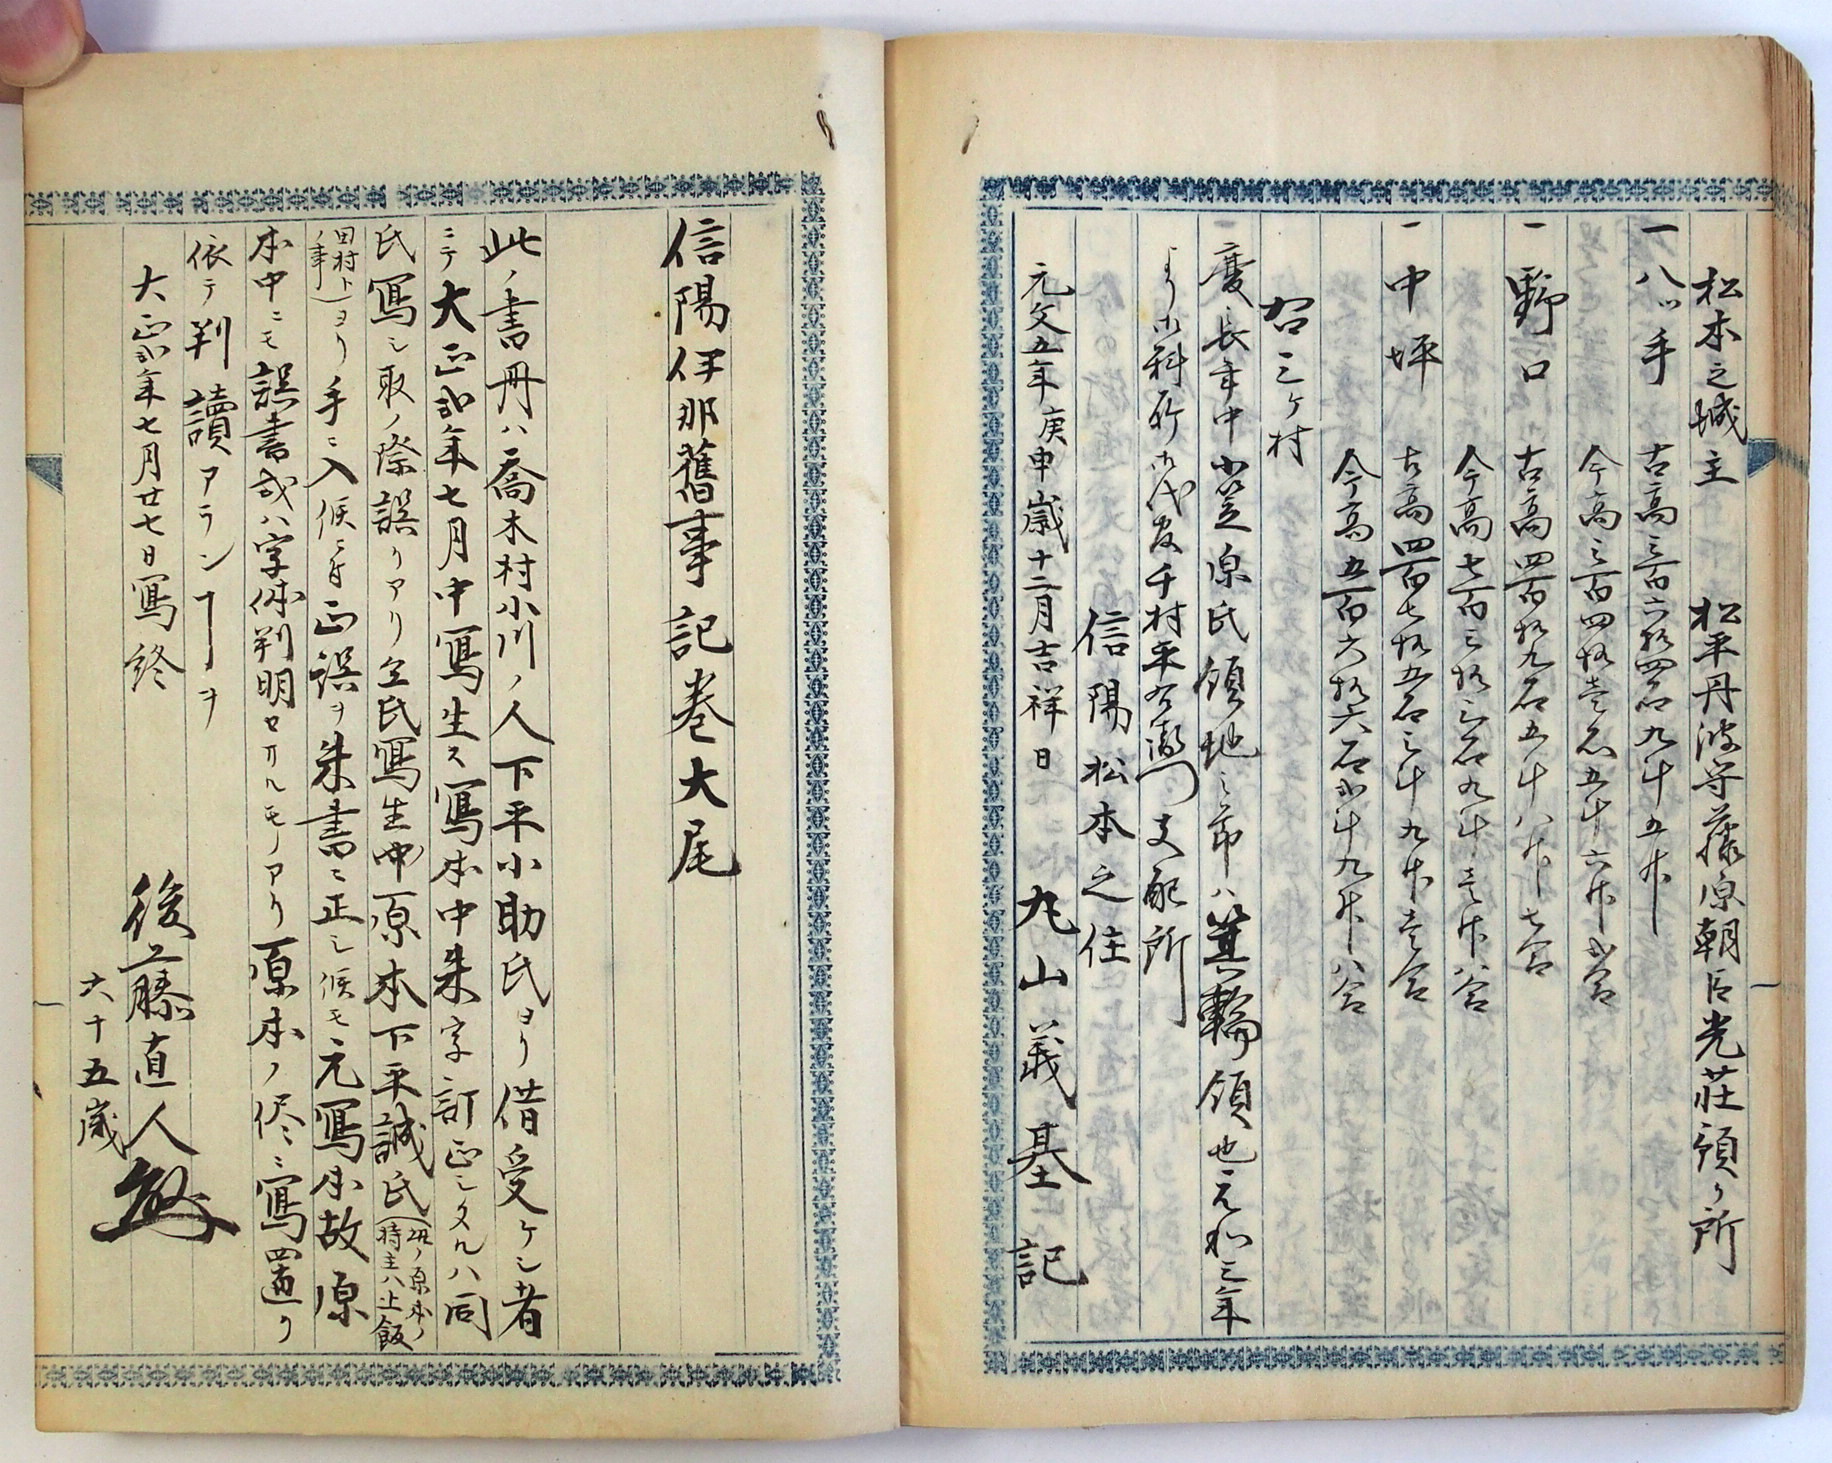 松本之城主　松平丹波守藤原朝臣光荘領ノ所
一八ッ手　古高三百六拾四石九斗五升
今高三百四拾壱石五斗六升弐合
一野口　古高四百拾九石五斗八升七合
今高七百三拾三石九斗壱升八合
一中坪　古高四百七拾五石三斗九升壱合
今高五百六拾六石弐斗九升八合
右三ヶ村
一慶長年中小笠原氏領地之節ハ箕輪領也元和三年
より御料所御代官千村平右衛門支配所
信陽松本之住
元文五年庚申歳十二月吉祥日　丸山義基記
信陽伊那舊事記巻大尾
此ノ書冊ハ喬木村小川ノ人下平小助氏ヨリ借受ケシ者
ニテ大正弐年七月中寫生ス寫本中朱字訂正シタルハ同
氏寫シ取ノ際誤リアリ仝氏寫生セシ原本下平誠氏(此ノ原本ノ時主ハ上飯
田村ト(ノ事)ヨリ手ニ入候ニ付正誤ヲ朱書ニ正シ候モ元寫本故原
本中ニモ誤書或ハ字体判明セサルモノアリ原本ノ侭ニ寫置リ
依テ判讀アランヿヲ
大正弐年七月廿七日寫終
後藤直人
六十五歳